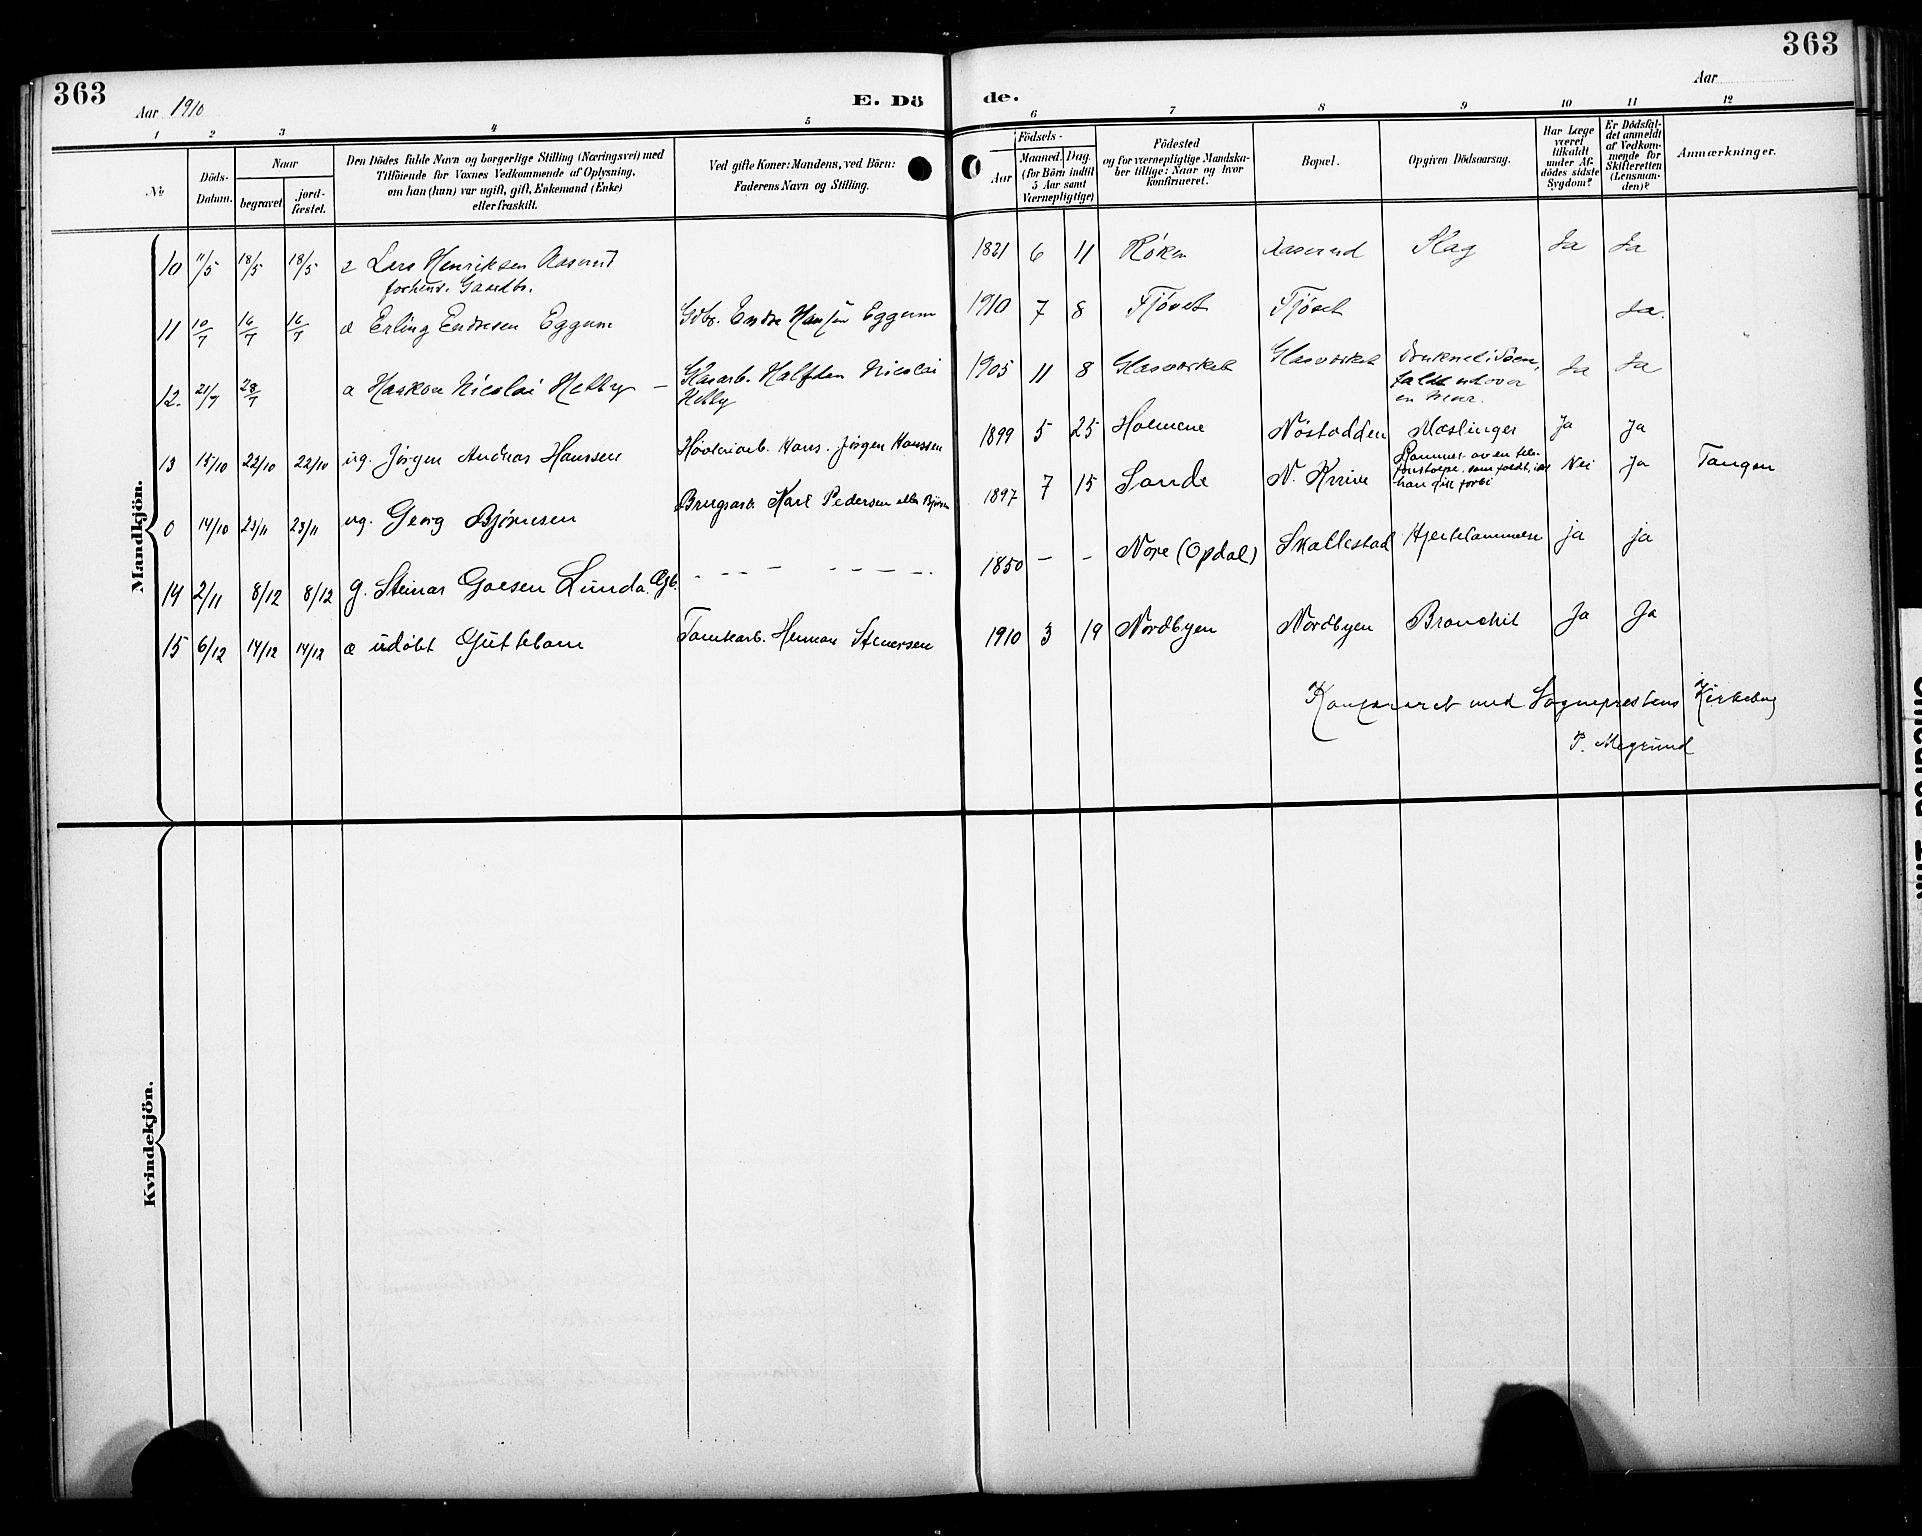 363
Aar 1910
E. Dö
de.
363
Aar
1 2 3 4 5 6 7 8 9 10 11 12
No
Döds-
Datum.
Naar
begravet.
jord-
fæstet.
Den Dödes fulde Navn og borgerlige Stilling (Næringsvei) med
Tilföiende for Voxnes Vedkommende af Oplysning,
om han (hun) var ugift, gift, Enkemand (Enke)
eller fraskilt.
Ved gifte Koner: Mandens, ved Börn:
Faderens Navn og Stilling.
Födsels-
Aar
Maaned. Dag.
(for Börn indtil
5 Aar samt
Værnepligtige)
Födested
og for værnepligtige Mandska-
ber tillige: Naar og hvor
konfirmeret.
Bopæl.
Opgiven Dödsaarsag.
Har Læge
været
tilkaldt
under Af-
dödes sidste
Sygdom?
Er Dödsfal-
det anmeldt
af Vedkom-
mende for
Skifteretten
(Lensman-
den)?
Anmærkninger.
Mandkjön.
10 11/5 18/5 18/5 e Lars Henriksen Aasrud 1821 6 11 Røken Aasrud Slag Ja Ja
forhenv. Gaardbr.
11 10/7 16/7 16/7 æ Erling Endresen Eggum Gdbr. Endre Hansen Eggum 1910 7 8 Tjøset Tjøset Ja.
12. 21/7 28/7 æ Haakon Nicolai Helby – Glasarb. Halfdan Nicolai
Helby 1905 11 8 Glasværket Glasværket Druknet i Søen,
faldt ud over
en Mur. Ja Ja
13 15/10 22/10 22/10 ug. Jørgen Andreas Hanssen Høvleriarb. Hans Jørgen Hanssen 1899 5 25 Holmene Nøstodden Mæslinger Ja Ja
0 14/10 23/11 23/11 ug. Georg Bjørnesen Brugsarb. Karl Pedersen eller Bjørnsen 1897 7 15 Sande N. Rammet av en tele-
fonstolpe, som faldt, idet
han gik forbi Nei Ja Tangen
14 2/11 8/12 8/12 g. Steinar Goesen Lunda. Gb. – – – – – – – 1850 – – Nore (Opdal) Skallestad Hjertelammelse ja ja
15 6/12 14/12 14/12 æ udøbt Guttebarn Tomtearb. Herman Stenersen 1910 3 19 Nordbyen Nordbyen Bronchit Ja Ja
Konfereret med Sogneprestens Kirkebog
P.
Kvindekjön.